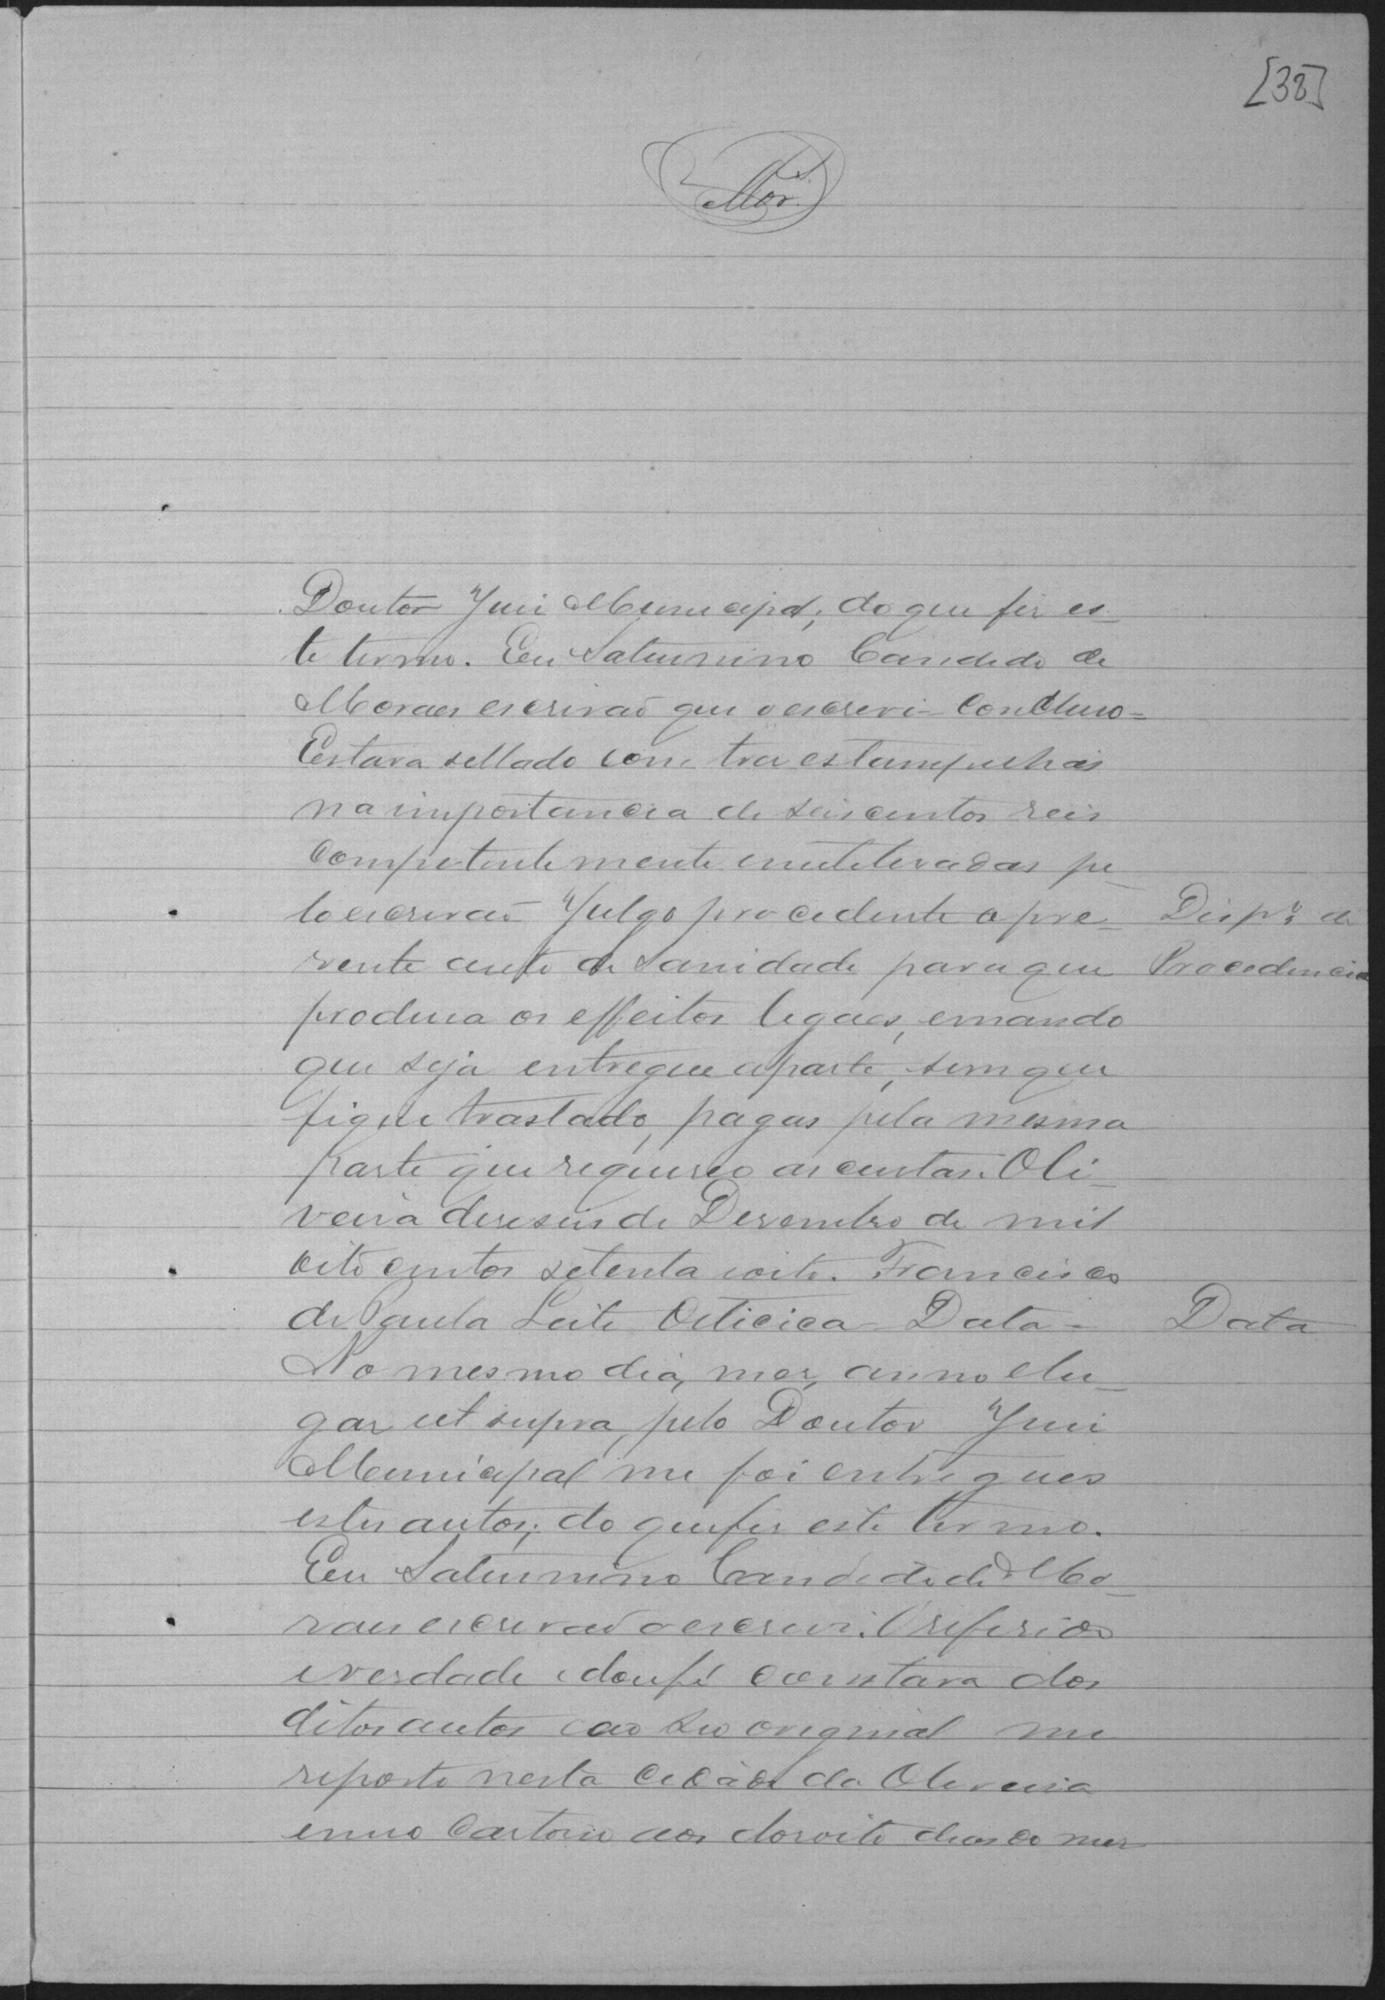 [38]
Mor.
Doutor Juiz Municipal; do que fiz es-
te termo. Eu Saturnino Candido de
Moraes escrivaõ que o escrevi - Concluso =
Estava sellado com tres estampilhas
na importancia de seis centos reis
competente mente inutilizadas pe-
lo escrivaõ Julgo procedente o pre-
sente auto de Sanidade para que
produza os effeitos legaes, e mando
que seja entregue a parte, sem que
fique traslado, pagas pela mesma
parte que requereo as custas. Oli-
veira deseseis de Dezembro de mil
oito centos setenta e oito. Francisco
de Paula Leite Oiticica - Data =
No mesmo dia, mez, anno e lu-
gar ut supra, pelo Doutor Juiz
Municipal me foi entregues
estes autos; do que fiz este termo.
Eu Saturnino Candido de Mo-
raes escrivaõ o escrevi. O referido
e verdade e dou fé constava dos
ditos autos e ao seo original me
reporto nesta cidade da Oliveira
em o Cartorio aos dezoito dias do mez
Disp.º de
Procedencia
Data